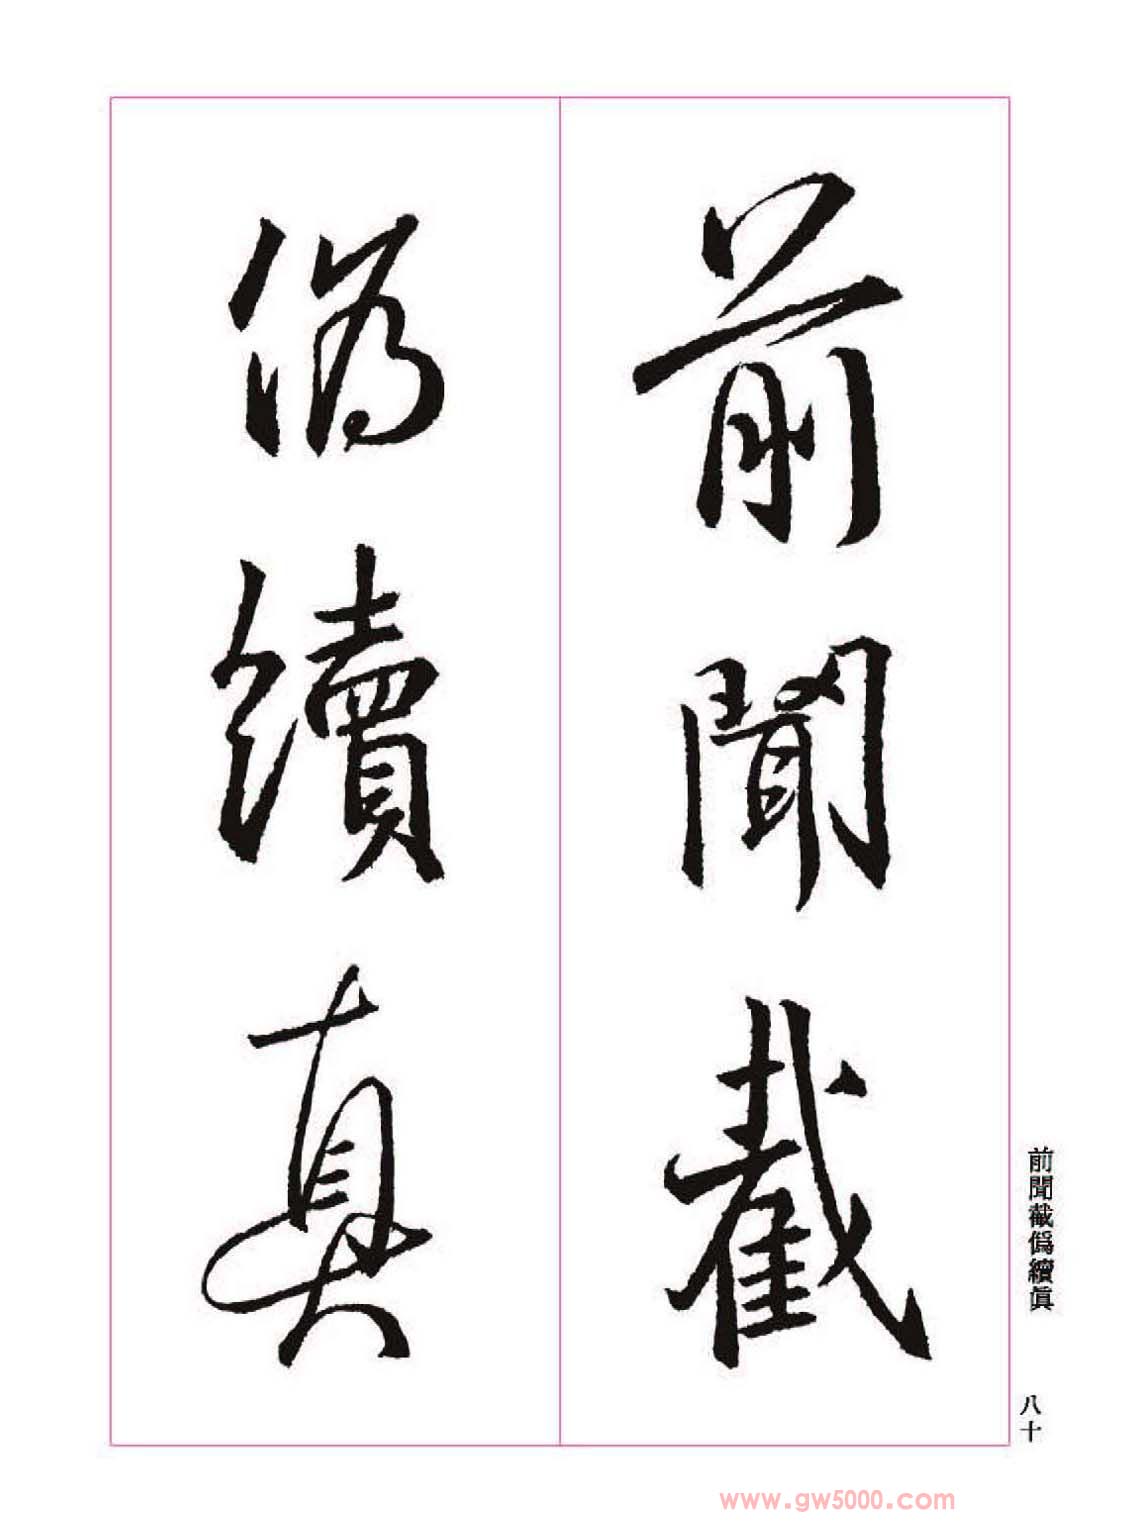 前聞截
偽續真
前聞截僞續眞
八十
www.gw5000.com